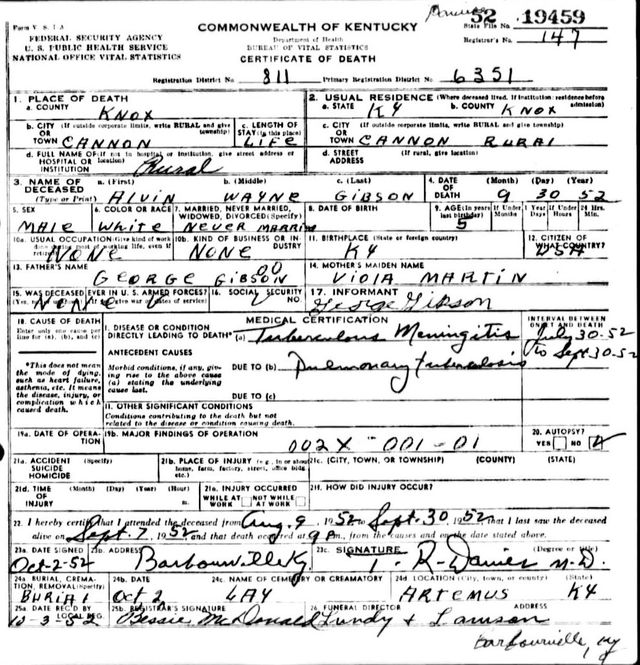 Form V. S. 1-A
COMMONWEALTH OF KENTUCKY
State File No. 52 19459
FEDERAL SECURITY AGENCY
Department of Health
Registrar's No. 147
U. S. PUBLIC HEALTH SERVICE
BUREAU OF VITAL STATISTICS
NATIONAL OFFICE VITAL STATISTICS
CERTIFICATE OF DEATH
Registration District No. 811 Primary Registration District No. 6351
1. PLACE OF DEATH
a. COUNTY KNOX
2. USUAL RESIDENCE (Where deceased lived. If institution: residence before admission)
a. STATE KY b. COUNTY KNOX
b. CITY (If outside corporate limits, write RURAL and give township) OR TOWN CANNON
c. LENGTH OF STAY (in this place) LIFE
c. CITY (If outside corporate limits, write RURAL and give township) OR TOWN CANNON RURAL
d. FULL NAME OF (If not in hospital or institution, give street address or location) HOSPITAL OR INSTITUTION Rural
d. STREET ADDRESS (If rural, give location)
3. NAME OF DECEASED (Type or Print)
a. (First) ALVIN b. (Middle) WAYNE c. (Last) GIBSON
4. DATE OF DEATH (Month) (Day) (Year) 9 30 52
5. SEX MALE
6. COLOR OR RACE White
7. MARRIED, NEVER MARRIED, WIDOWED, DIVORCED (Specify) NEVER MARRIED
8. DATE OF BIRTH
9. AGE (In years last birthday) 5 If Under 1 Year Months Days If Under 24 Hrs. Hours Min.
10a. USUAL OCCUPATION (Give kind of work done during most of working life, even if retired) NONE
10b. KIND OF BUSINESS OR INDUSTRY NONE
11. BIRTHPLACE (State or foreign country) KY
12. CITIZEN OF WHAT COUNTRY? USA
13. FATHER'S NAME GEORGE GIBSON
14. MOTHER'S MAIDEN NAME VIOLA MARTIN
15. WAS DECEASED EVER IN U. S. ARMED FORCES? NONE
16. SOCIAL SECURITY NO.
17. INFORMANT George Gibson
18. CAUSE OF DEATH
Enter only one cause per line for (a), (b), and (c)
MEDICAL CERTIFICATION
INTERVAL BETWEEN ONSET AND DEATH
I. DISEASE OR CONDITION DIRECTLY LEADING TO DEATH* (a) Tuberculous Meningitis July 30-52 to Sept 30-52
*This does not mean the mode of dying, such as heart failure, asthenia, etc. It means the disease, injury, or complication which caused death.
ANTECEDENT CAUSES
Morbid conditions, if any, giving rise to the above cause (a) stating the underlying cause last.
DUE TO (b) Pulmonary tuberculosis
DUE TO (c)
II. OTHER SIGNIFICANT CONDITIONS
Conditions contributing to the death but not related to the disease or condition causing death.
19a. DATE OF OPERATION
19b. MAJOR FINDINGS OF OPERATION
002X 001-01
20. AUTOPSY? YES NO
21a. ACCIDENT SUICIDE HOMICIDE (Specify)
21b. PLACE OF INJURY (e.g., in or about home, farm, factory, street, office bldg., etc.)
21c. (CITY, TOWN, OR TOWNSHIP) (COUNTY) (STATE)
21d. TIME OF INJURY (Month) (Day) (Year) (Hour) m.
21e. INJURY OCCURRED WHILE AT WORK NOT WHILE AT WORK
21f. HOW DID INJURY OCCUR?
22. I hereby certify that I attended the deceased from Aug 9, 1952 to Sept. 30, 1952 that I last saw the deceased
alive on Sept. 7, 1952 and that death occurred at 9 P m., from the causes and on the date stated above.
23a. DATE SIGNED Oct-2-52
23b. ADDRESS Barbourville Ky
23c. SIGNATURE (Degree or title) R. Davies M.D.
24a. BURIAL, CREMATION, REMOVAL (Specify) BURIAL
24b. DATE Oct 2
24c. NAME OF CEMETERY OR CREMATORY LAY
24d. LOCATION (City, town, or county) (State) ARTEMUS KY
25a. DATE REC'D BY LOCAL REG. 10-3-52
25b. REGISTRAR'S SIGNATURE Bessie McDonald
26. FUNERAL DIRECTOR Lundy + Lawson
Barbourville, Ky